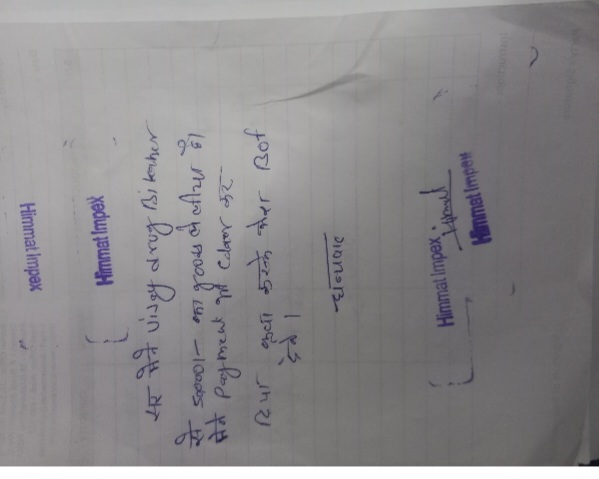 Himmat Impex
Himmat Impex
सर मैने vijay drug Bikaner
से 50000/- का goods ले लीया है
मैने payment भी clear कर
दिया कृपा करके मेरा
देवे।
धन्यवाद
Himmat Impex
Himmat Impex